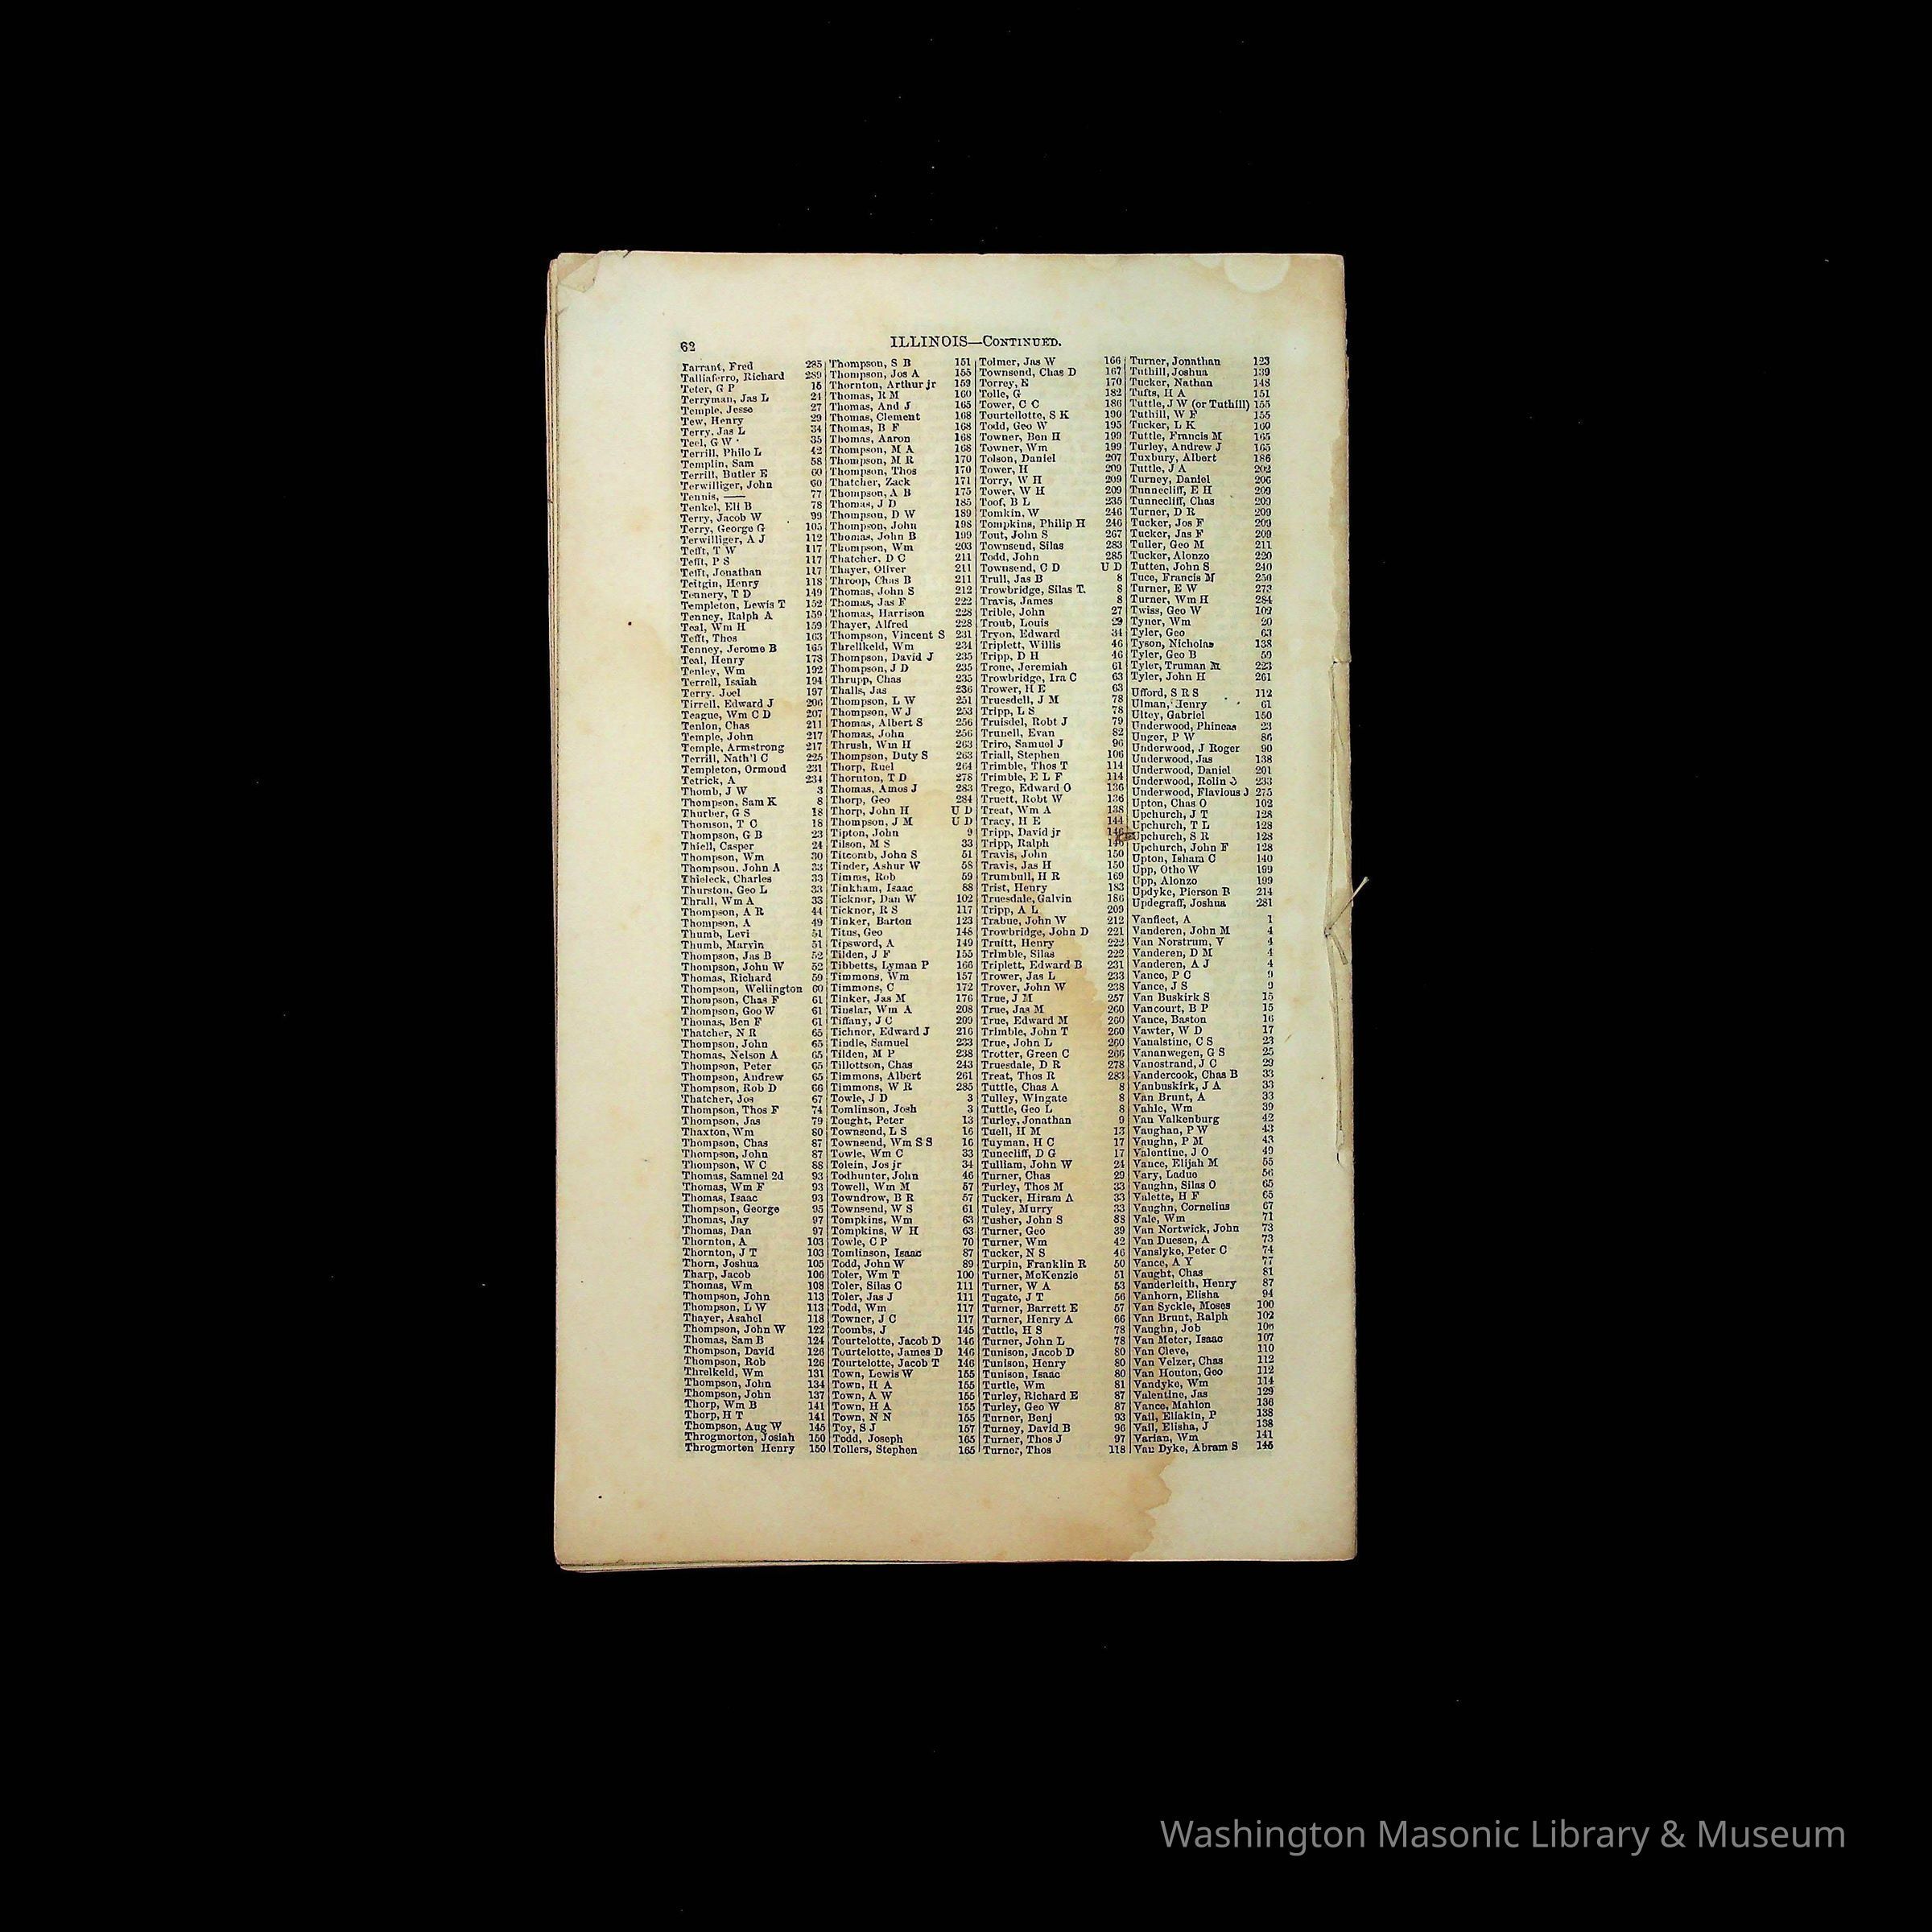 62
ILLINOIS—CONTINUED.
Tarrant, Fred 285
Talliaferro, Richard 289
Teter, G P 15
Terryman, Jas L 21
Temple, Jesse 27
Tew, Henry 29
Terry, Jas L 34
Teel, G W 35
Terrill, Philo L 42
Templin, Sam 58
Terrill, Butler E 60
Terwilliger, John 60
Tennis, —— 77
Tenkel, Eli B 78
Terry, Jacob W 99
Terry, George G 105
Terwilliger, A J 112
Tefft, T W 117
Tefft, P S 117
Tefft, Jonathan 117
Teitgin, Henry 118
Tennery, T D 149
Templeton, Lewis T 152
Tenney, Ralph A 159
Teal, Wm H 159
Tefft, Thos 163
Tenney, Jerome B 165
Teal, Henry 178
Tenley, Wm 192
Terrell, Isaiah 194
Terry, Joel 197
Tirrell, Edward J 206
Teague, Wm C D 207
Tenlon, Chas 211
Temple, John 217
Temple, Armstrong 217
Terrill, Nath'l C 225
Templeton, Ormond 231
Tetrick, A 234
Thomb, J W 3
Thompson, Sam K 8
Thurber, G S 18
Thomson, T C 18
Thompson, G B 23
Thiell, Casper 24
Thompson, Wm 30
Thompson, John A 33
Thieleck, Charles 33
Thurston, Geo L 33
Thrall, Wm A 33
Thompson, A R 44
Thompson, A 49
Thumb, Levi 51
Thumb, Marvin 51
Thompson, Jas B 52
Thompson, John W 52
Thomas, Richard 59
Thompson, Wellington 60
Thompson, Chas F 61
Thompson, Goo W 61
Thomas, Ben F 61
Thatcher, N R 65
Thompson, John 65
Thomas, Nelson A 65
Thompson, Peter 65
Thompson, Andrew 65
Thompson, Rob D 66
Thatcher, Jos 67
Thompson, Thos F 74
Thompson, Jas 79
Thaxton, Wm 80
Thompson, Chas 87
Thompson, John 87
Thompson, W C 88
Thomas, Samuel 2d 93
Thomas, Wm F 93
Thomas, Isaac 93
Thompson, George 95
Thomas, Jay 97
Thomas, Dan 97
Thornton, A 103
Thornton, J T 103
Thorn, Joshua 105
Tharp, Jacob 106
Thomas, Wm 108
Thompson, John 113
Thompson, L W 113
Thayer, Asahel 118
Thompson, John W 122
Thomas, Sam B 124
Thompson, David 126
Thompson, Rob 126
Threlkeld, Wm 131
Thompson, John 134
Thompson, John 137
Thorp, Wm B 141
Thorp, H T 141
Thompson, Aug W 145
Throgmorton, Josiah 150
Throgmorten Henry 150
Thompson, S B 151
Thompson, Jos A 155
Thornton, Arthur jr 159
Thomas, R M 160
Thomas, And J 165
Thomas, Clement 168
Thomas, B F 168
Thomas, Aaron 168
Thompson, M A 168
Thompson, M R 170
Thompson, Thos 170
Thatcher, Zack 171
Thompson, A B 175
Thomas, J D 185
Thompson, D W 189
Thompson, John 198
Thomas, John B 199
Thompson, Wm 203
Thatcher, D C 211
Thayer, Oliver 211
Throop, Chas B 211
Thomas, John S 212
Thomas, Jas F 222
Thomas, Harrison 228
Thayer, Alfred 228
Thompson, Vincent S 231
Threllkeld, Wm 234
Thompson, David J 235
Thompson, J D 235
Thrupp, Chas 235
Thalls, Jas 236
Thompson, L W 251
Thompson, W J 253
Thomas, Albert S 256
Thomas, John 256
Thrush, Wm H 263
Thompson, Duty S 263
Thorp, Ruel 264
Thornton, T D 278
Thomas, Amos J 283
Thorp, Geo 284
Thorp, John H U D
Thompson, J M U D
Tipton, John 9
Tilson, M S 33
Titcomb, John S 51
Tinder, Ashur W 58
Timms, Rob 59
Tinkham, Isaac 88
Ticknor, Dan W 102
Ticknor, R S 117
Tinker, Barton 123
Titus, Geo 148
Tipsword, A 149
Tilden, J F 155
Tibbetts, Lyman P 166
Timmons, Wm 157
Timmons, C 172
Tinker, Jas M 176
Tinslar, Wm A 208
Tiffany, J C 209
Tichnor, Edward J 216
Tindle, Samuel 233
Tilden, M P 238
Tillottson, Chas 243
Timmons, Albert 261
Timmons, W R 285
Towle, J D 3
Tomlinson, Josh 3
Tought, Peter 13
Townsend, L S 16
Townsend, Wm S S 16
Towle, Wm C 33
Tolein, Jos jr 34
Todhunter, John 46
Towell, Wm M 57
Towndrow, B R 57
Townsend, W S 61
Tompkins, Wm 63
Tompkins, W H 63
Towle, C P 70
Tomlinson, Isaac 87
Todd, John W 89
Toler, Wm T 100
Toler, Silas C 111
Toler, Jas J 111
Todd, Wm 117
Towner, J C 117
Toombs, J 145
Tourtelotte, Jacob D 146
Tourtelotte, James D 146
Tourtelotte, Jacob T 146
Town, Lewis W 155
Town, H A 155
Town, A W 155
Town, H A 155
Town, N N 155
Toy, S J 157
Todd, Joseph 165
Tollers, Stephen 165
Tolmer, Jas W 166
Townsend, Chas D 167
Torrey, E 170
Tolle, G 182
Tower, C C 186
Tourtellotte, S K 190
Todd, Geo W 195
Towner, Ben H 199
Towner, Wm 199
Tolson, Daniel 207
Tower, H 209
Torry, W H 209
Tower, W H 209
Toof, B L 235
Tomkin, W 246
Tompkins, Philip H 246
Tout, John S 267
Townsend, Silas 283
Todd, John 285
Townsend, C D U D
Trull, Jas B 8
Trowbridge, Silas T. 8
Travis, James 8
Trible, John 27
Troub, Louis 29
Tryon, Edward 34
Triplett, Willis 46
Tripp, D H 46
Trone, Jeremiah 61
Trowbridge, Ira C 63
Trower, H E 63
Truesdell, J M 78
Tripp, L S 78
Truisdel, Robt J 79
Trunell, Evan 82
Triro, Samuel J 96
Triall, Stephen 106
Trimble, Thos T 114
Trimble, E L F 114
Trego, Edward O 136
Truett, Robt W 136
Treat, Wm A 138
Tracy, H E 144
Tripp, David jr 146
Tripp, Ralph 146
Travis, John 150
Travis, Jas H 150
Trumbull, H R 169
Trist, Henry 183
Truesdale, Galvin 186
Tripp, A L 209
Trabue, John W 212
Trowbridge, John D 221
Truitt, Henry 222
Trimble, Silas 222
Triplett, Edward B 231
Trower, Jas L 233
Trover, John W 238
True, J M 257
True, Jas M 260
True, Edward M 260
Trimble, John T 260
True, John L 260
Trotter, Green C 266
Truesdale, D R 278
Treat, Thos R 283
Tuttle, Chas A 8
Tulley, Wingate 8
Tuttle, Geo L 8
Turley, Jonathan 9
Tuell, H M 13
Tuyman, H C 17
Tunecliff, D G 17
Tulliam, John W 24
Turner, Chas 29
Turley, Thos M 33
Tucker, Hiram A 33
Tuley, Murry 33
Tusher, John S 88
Turner, Geo 39
Turner, Wm 42
Tucker, N S 46
Turpin, Franklin R 50
Turner, McKenzie 51
Turner, W A 53
Tugate, J T 56
Turner, Barrett E 57
Turner, Henry A 66
Tuttle, H S 78
Turner, John L 78
Tunison, Jacob D 80
Tunison, Henry 80
Tunison, Isaac 80
Turtle, Wm 81
Turley, Richard E 87
Turley, Geo W 87
Turner, Benj 93
Turney, David B 96
Turner, Thos J 97
Turner, Thos 118
Turner, Jonathan 123
Tuthill, Joshua 139
Tucker, Nathan 148
Tufts, H A 151
Tuttle, J W (or Tuthill) 155
Tuthill, W F 155
Tucker, L K 160
Tuttle, Francis M 165
Turley, Andrew J 165
Tuxbury, Albert 186
Tuttle, J A 202
Turney, Daniel 206
Tunnecliff, E H 209
Tunnecliff, Chas 209
Turner, D R 209
Tucker, Jos F 209
Tucker, Jas F 209
Tuller, Geo M 211
Tucker, Alonzo 220
Tutten, John S 240
Tuce, Francis M 250
Turner, E W 273
Turner, Wm H 284
Twiss, Geo W 102
Tyner, Wm 20
Tyler, Geo 63
Tyson, Nicholas 138
Tyler, Geo B 59
Tyler, Truman M 223
Tyler, John H 261
Ufford, S R S 112
Ulman, Henry 61
Ultey, Gabriel 150
Underwood, Phineas 23
Unger, P W 86
Underwood, J Roger 90
Underwood, Jas 138
Underwood, Daniel 201
Underwood, Rolin J 233
Underwood, Flavious J 275
Upton, Chas O 102
Upchurch, J T 128
Upchurch, T L 128
Upchurch, S R 128
Upchurch, John F 128
Upton, Isham C 140
Upp, Otho W 199
Upp, Alonzo 199
Updyke, Pierson B 214
Updegraff, Joshua 281
Vanfleet, A 1
Vanderen, John M 4
Van Norstrum, V 4
Vanderen, D M 4
Vanderen, A J 4
Vance, P C 9
Vance, J S 9
Van Buskirk S 15
Vancourt, B P 15
Vance, Baston 16
Vawter, W D 17
Vanalstine, C S 23
Vananwegen, G S 25
Vanostrand, J C 29
Vandercook, Chas B 33
Vanbuskirk, J A 33
Van Brunt, A 33
Vahle, Wm 39
Van Valkenburg 42
Vaughan, P W 43
Vaughn, P M 43
Valentine, J O 49
Vance, Elijah M 55
Vary, Ladue 56
Vaughn, Silas O 65
Valette, H F 65
Vaughn, Cornelius 67
Vale, Wm 71
Van Nortwick, John 73
Van Duesen, A 73
Vanslyke, Peter C 74
Vance, A Y 77
Vaught, Chas 81
Vanderleith, Henry 87
Vanhorn, Elisha 94
Van Syckle, Moses 100
Van Brunt, Ralph 102
Vaughn, Job 106
Van Meter, Isaac 107
Van Cleve, 110
Van Velzer, Chas 112
Van Houton, Geo 112
Vandyke, Wm 114
Valentine, Jas 129
Vance, Mahlon 136
Vail, Eliakin, P 138
Vail, Elisha, J 138
Varian, Wm 141
Van Dyke, Abram S 145
Washington Masonic Library & Museum